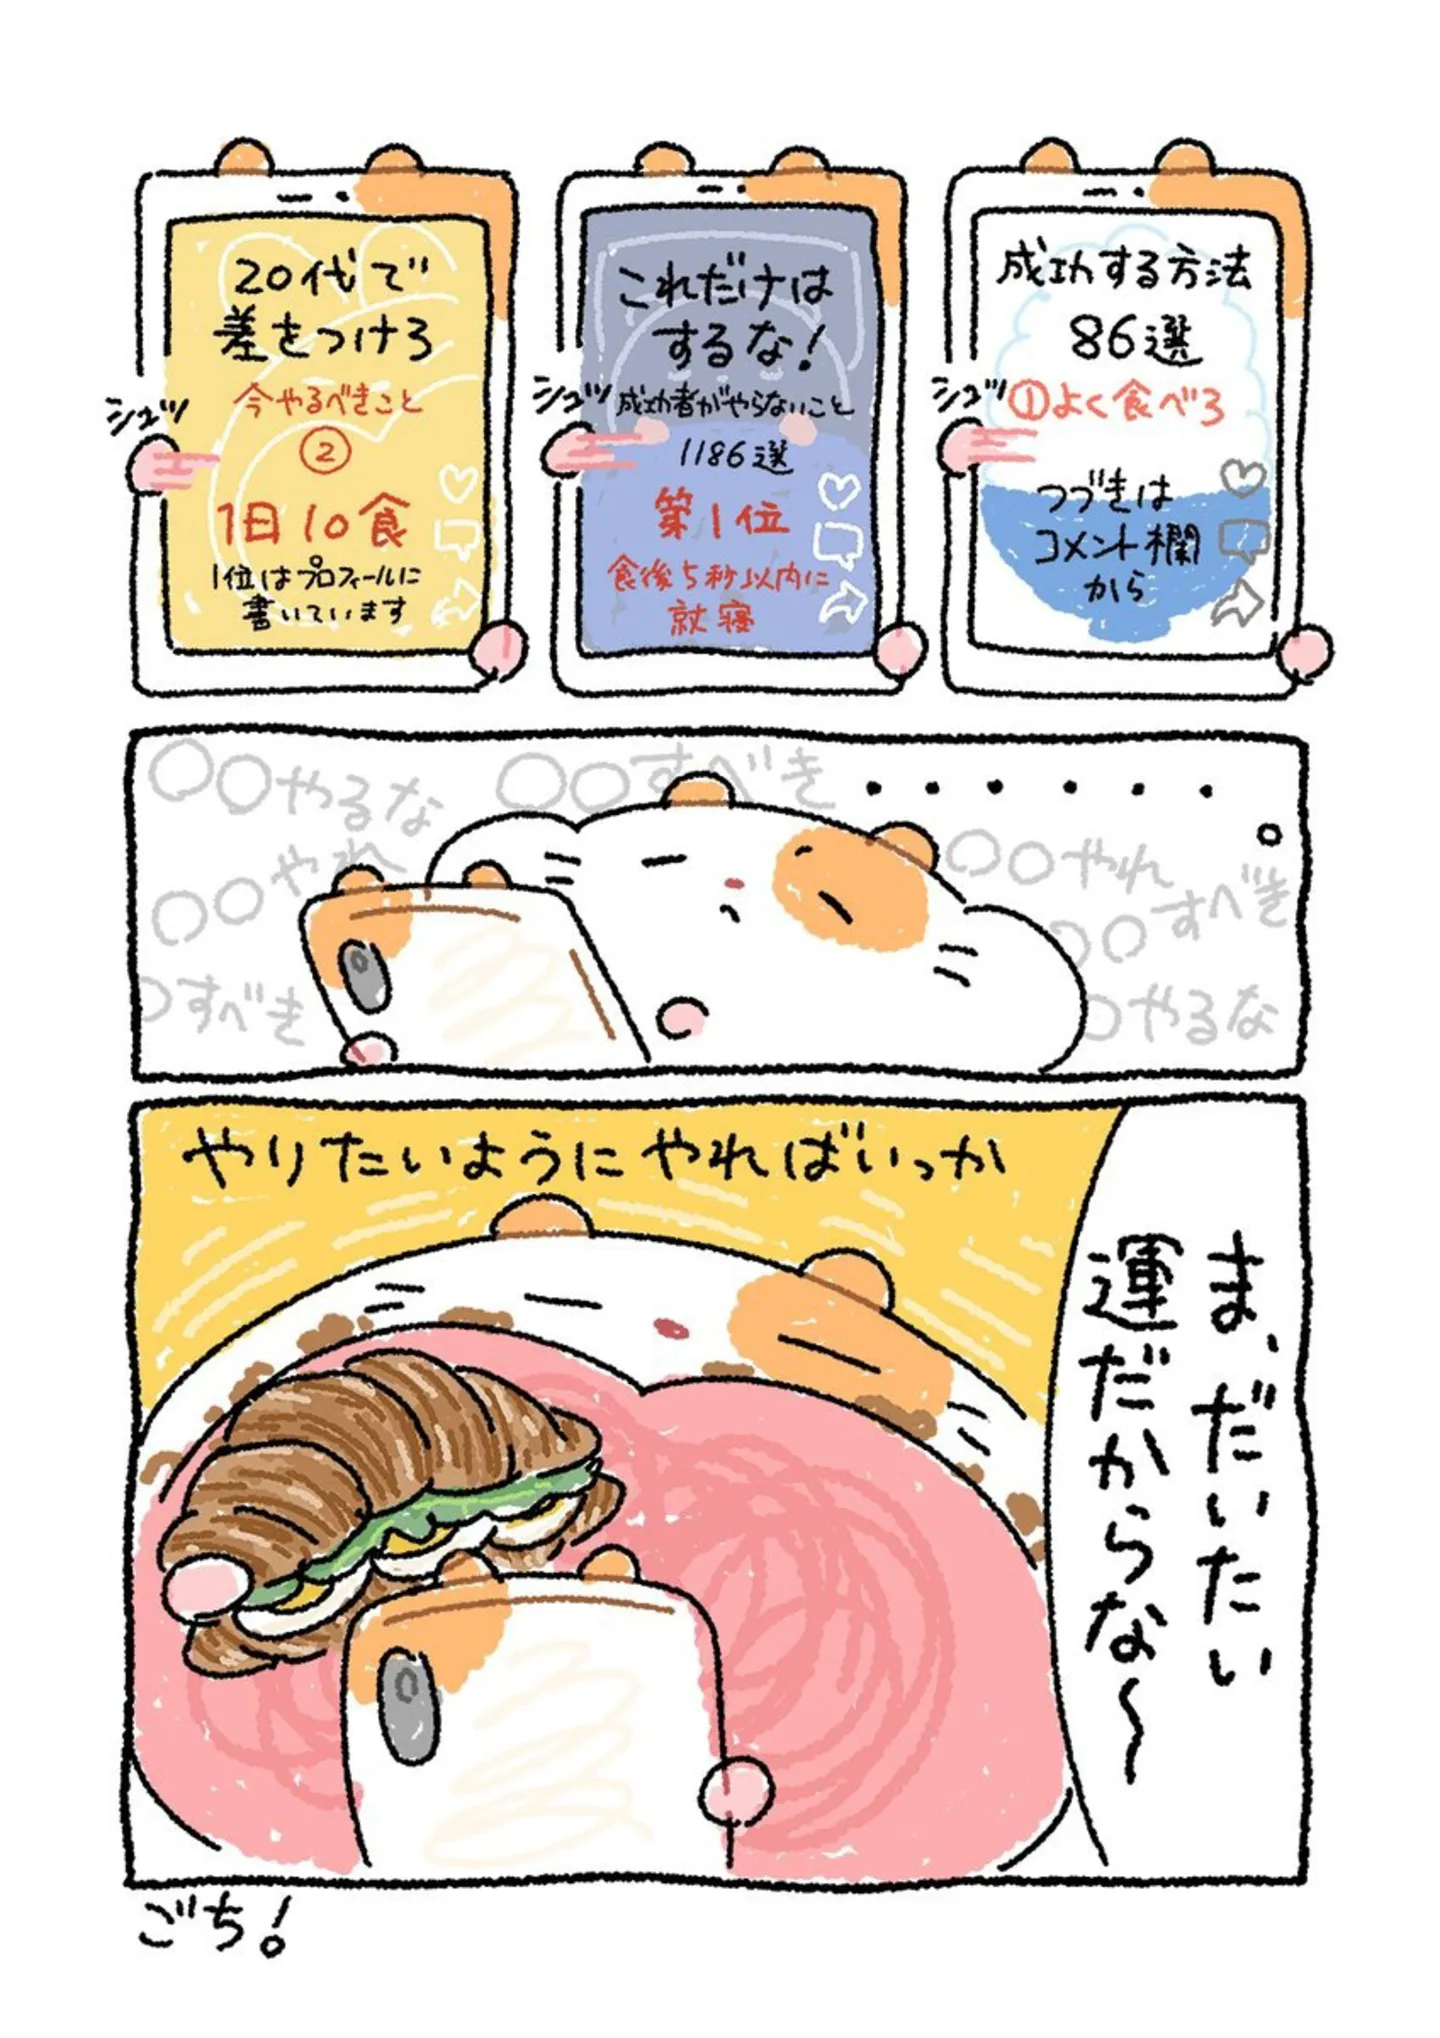 成功する方法
86選
①よく食べろ
つづきは
コメント欄
から
シュッ
これだけは
するな!
成功者がやらないこと
1186選
第1位
食後5秒以内に
就寝
シュッ
20代で
差をつけろ
今やるべきこと
②
1日10食
1位はプロフィールに
書いています
シュッ
・・・・・・。
○○すべき
○○やるな
○○やれ
○○すべき
○やるな
○○やれ
○すべき
ま、だいたい
運だからな〜
やりたいようにやればいっか
ごち!